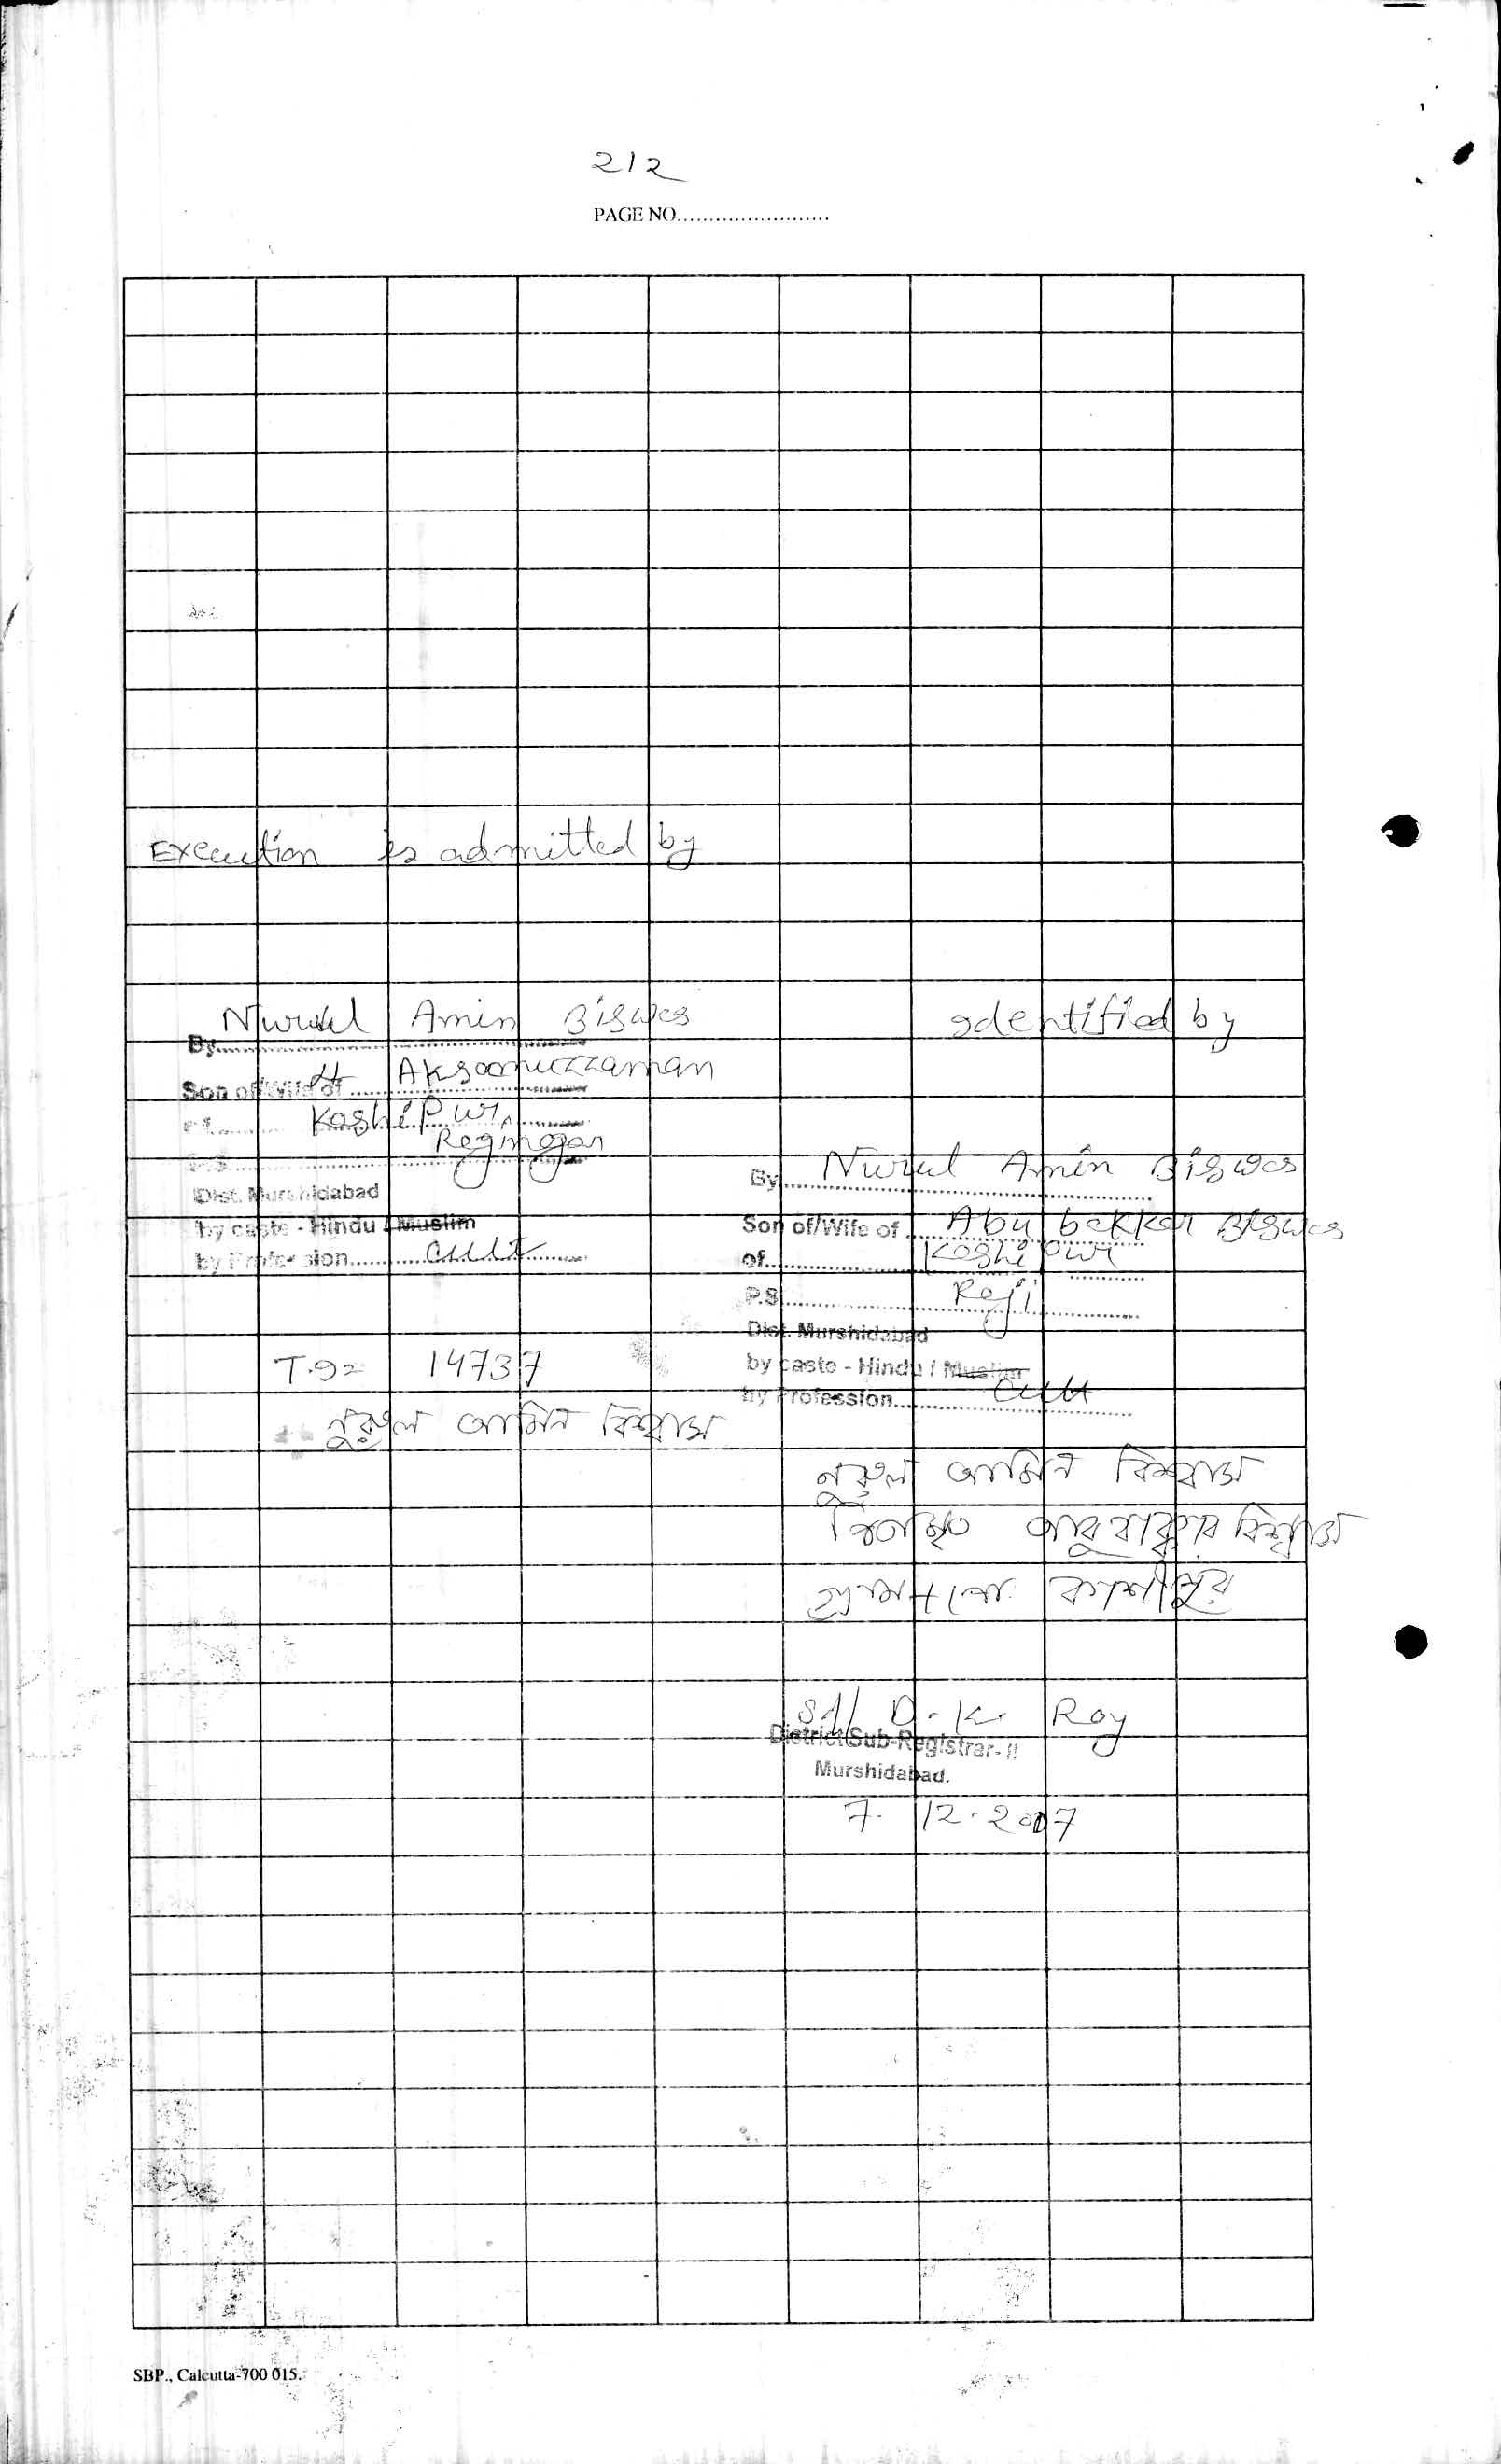 212
PAGE NO........................
Execution is admitted by
By Nurul Amin Biswas
Son of/Wife of Lt Aksoomuzzaman
Koshipur,
P.S. Regingan
Dist. Murshidabad
by caste - Hindu / Muslim
by Profession Cult
T.92 14737
নুরুল আমিন বিশ্বাস
Identified by
By Nurul Amin Biswas
Son of/Wife of Abu bekkar Biswas
of Koshipur
P.S. Reji
Dist. Murshidabad
by caste - Hindu / Muslim
by Profession Cult
নুরুল আমিন বিশ্বাস
পিতা মৃত আবু বাক্কার বিশ্বাস
গ্রাম + পো. কাশীপুর
Sd/ D. K. Roy
District Sub-Registrar- II
Murshidabad.
7. 12. 2007
SBP., Calcutta-700 015.